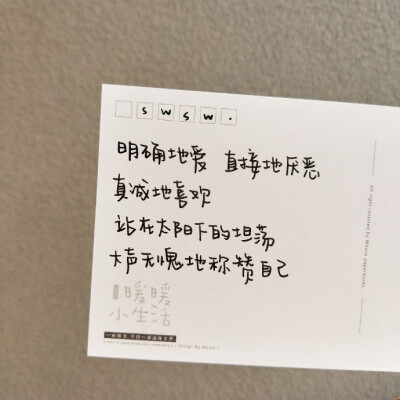 swsw.
明确地爱 直接地厌恶
真诚地喜欢
站在太阳下的坦荡
大声无愧地称赞自己
暖暖
小生活